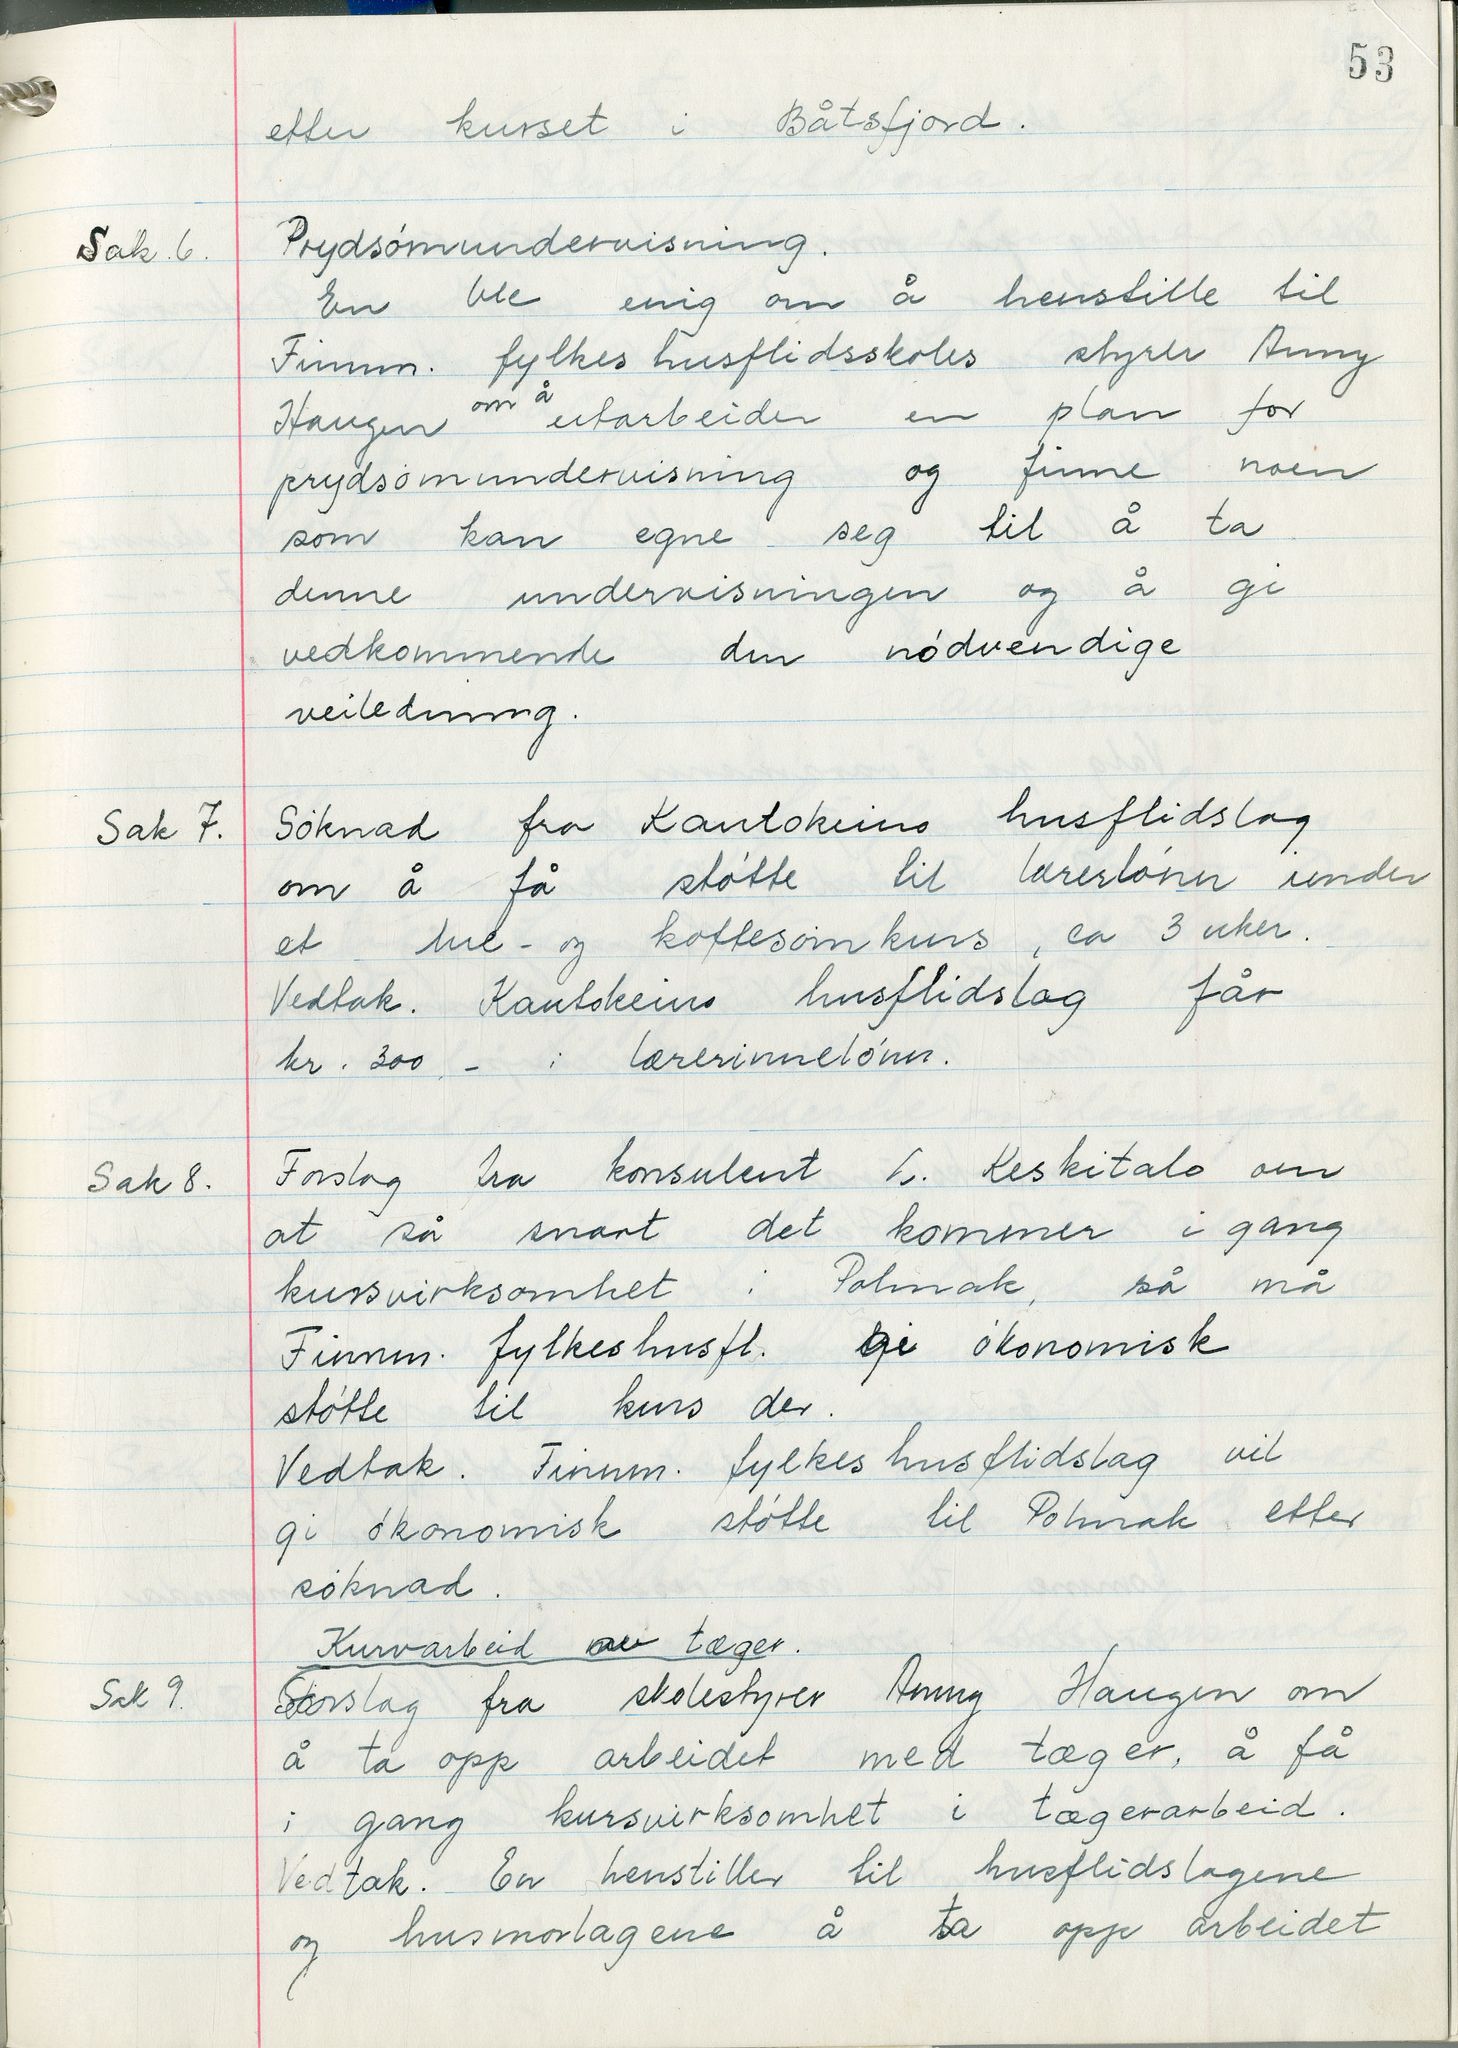 53
etter kurset i Båtsfjord.
Sak 6. Prydsömundervisning.
En ble enig om å henstille til
Finnm. fylkeshusflidsskoles styrer Anny
Haugen om å utarbeider en plan for
prydsömundervisning og finne noen
som kan egne seg til å ta
denne undervisningen og å gi
vedkommende den nödvendige
veiledning.
Sak 7. Söknad fra Kautokeino husflidslag
om å få stötte til lærerlönn under
et lue- og koftesömkurs, ca 3 uker.
Vedtak. Kautokeino husflidslag får
kr. 300,- i lærerinnelönn.
Sak 8. Forslag fra konsulent L. Keskitalo om
at så snart det kommer i gang
kursvirksomhet i Polmak, så må
Finnm. fylkeshusfl. gi ökonomisk
stötte til kurs der.
Vedtak. Finnm. fylkeshusflidslag vil
gi ökonomisk stötte til Polmak etter
söknad.
Kurvarbeid av tæger.
Sak 9. Forslag fra skolestyrer Anny Haugen om
å ta opp arbeidet med tæger, å få
i gang kursvirksomhet i tægerarbeid.
Vedtak. En henstiller til husflidslagene
og husmorlagene å ta opp arbeidet